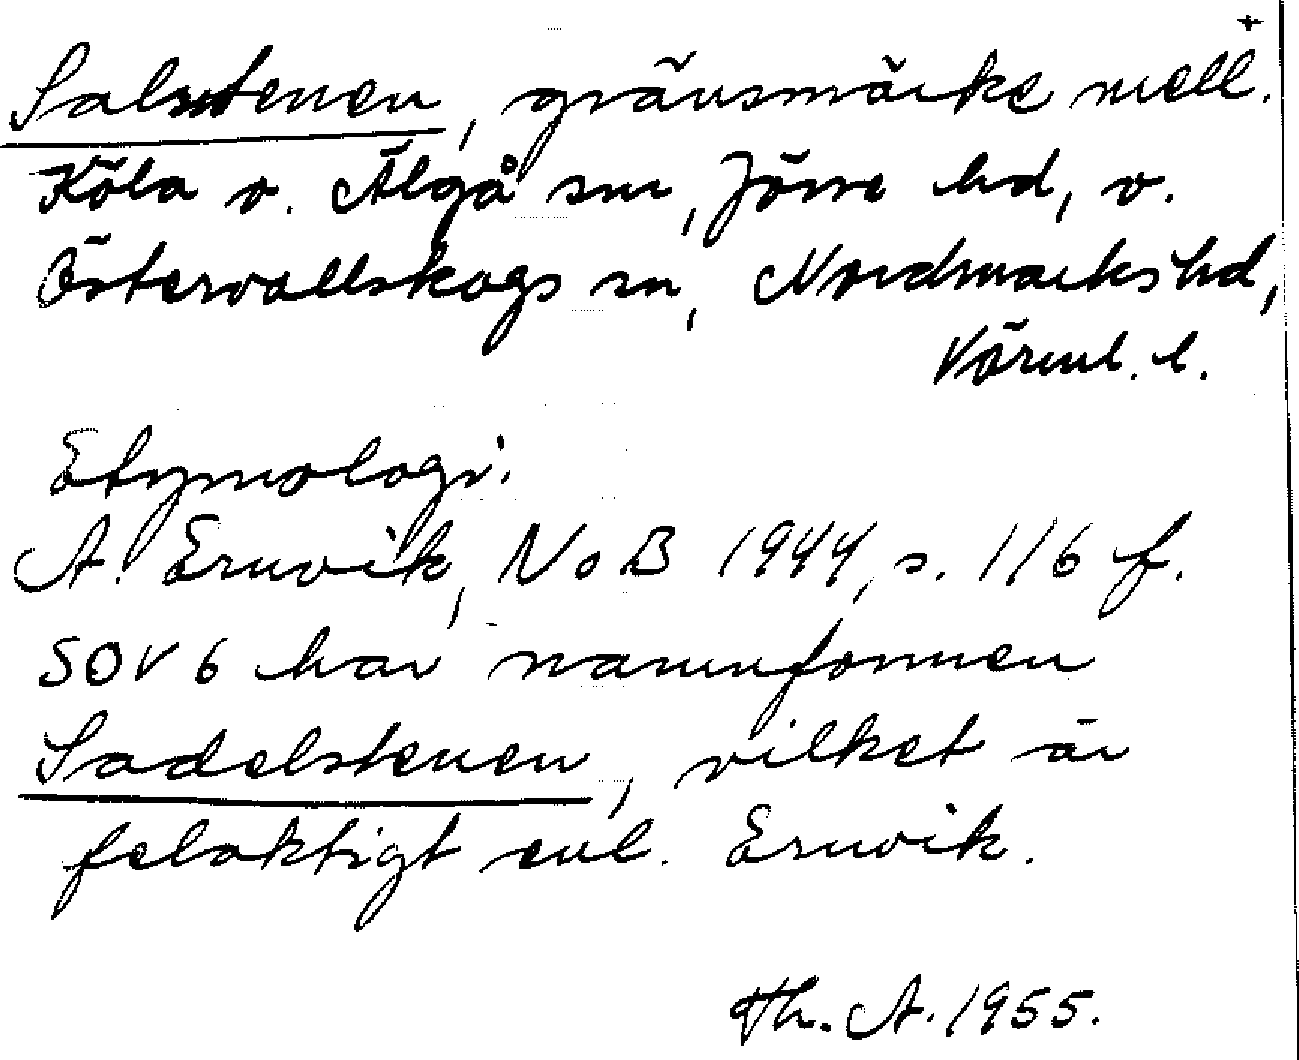 +
Salstenen, gränsmärke mell.
Köla o. Älgå snr, Jösse hd, o.
Östervallskogs sn, Nordmarks hd,
Värml. l.
Etymologi:
A. Ernvik, NoB 1944, s. 116 f.
SOV 6 har namnformen
Sadelstenen, vilket är
felaktigt enl. Ernvik.
Th. A. 1955.